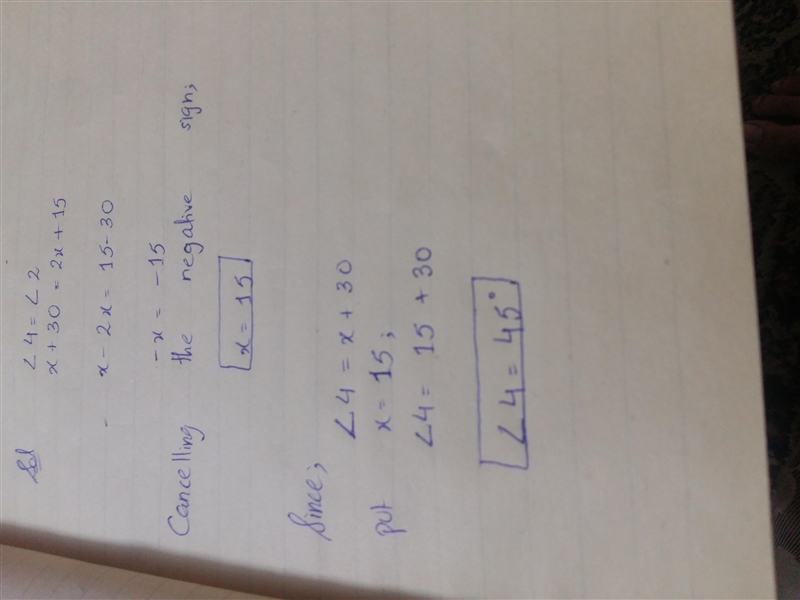 Sol
∠4 = ∠2
x + 30 = 2x + 15
x - 2x = 15 - 30
-x = -15
Cancelling the negative sign;
x = 15
Since; ∠4 = x + 30
put x = 15;
∠4 = 15 + 30
∠4 = 45°